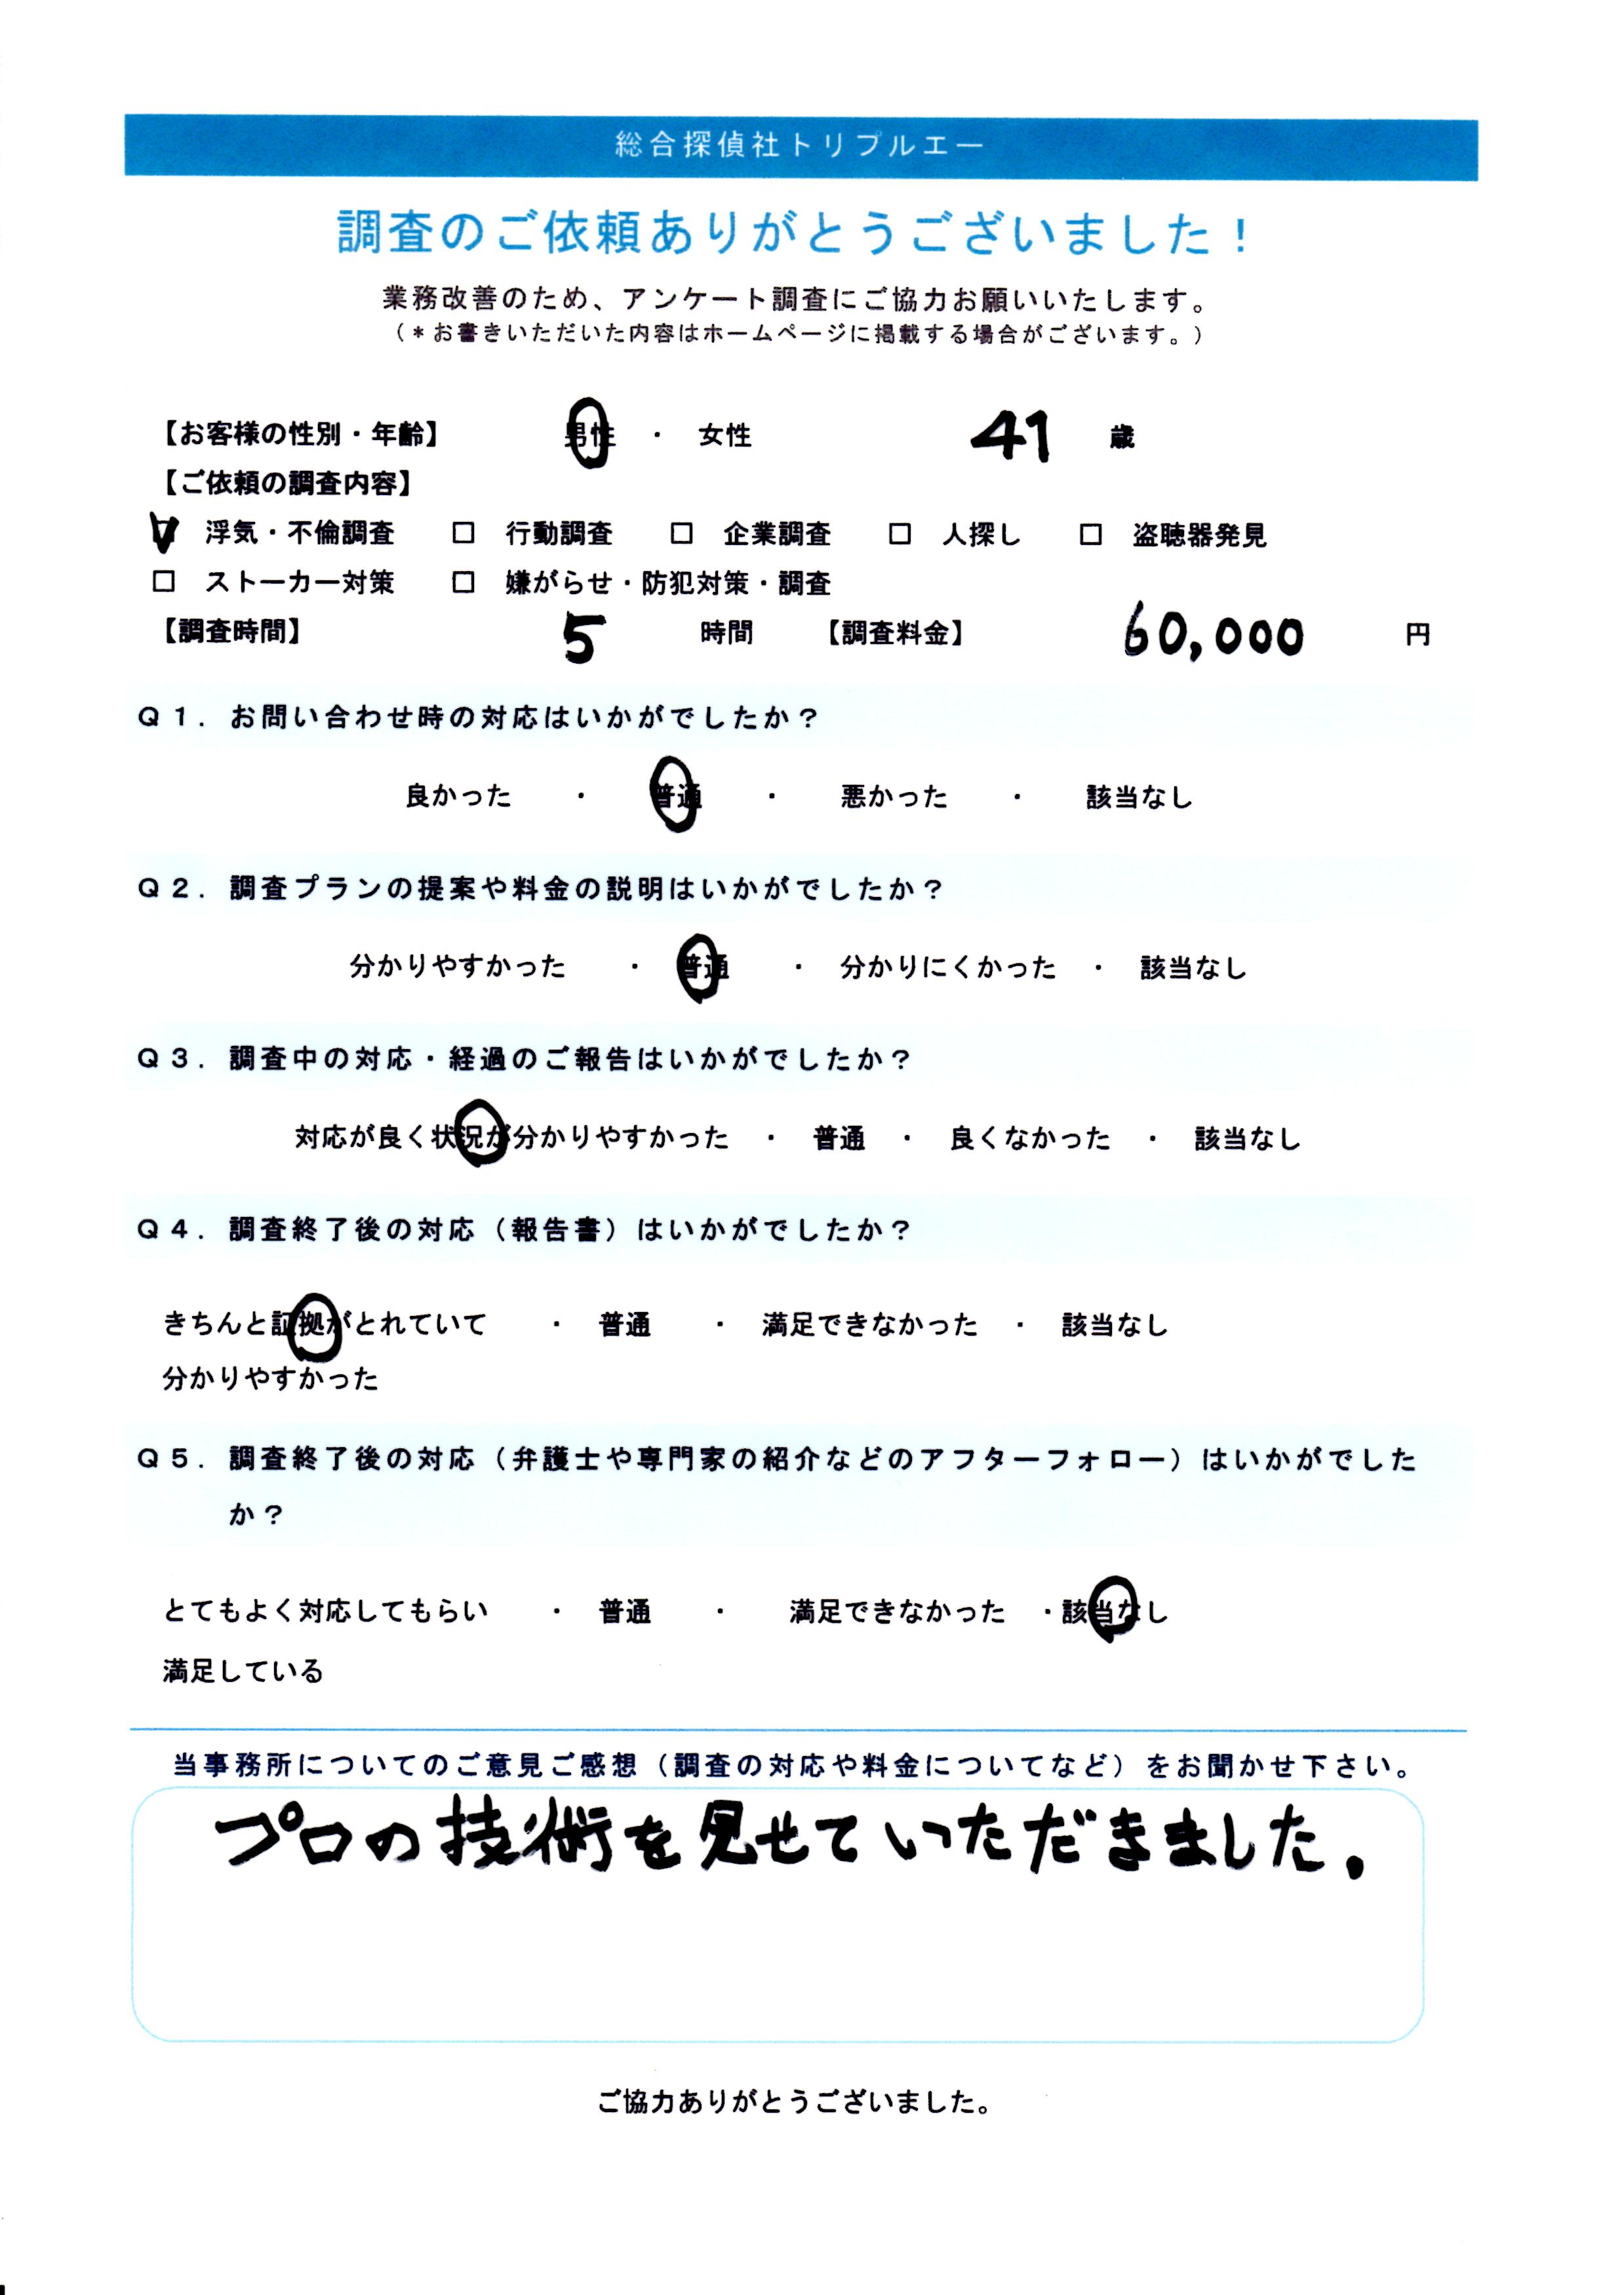 総合探偵社トリプルエー
調査のご依頼ありがとうございました！
業務改善のため、アンケート調査にご協力お願いいたします。
（＊お書きいただいた内容はホームページに掲載する場合がございます。）
【お客様の性別・年齢】 男性 ・ 女性 41 歳
【ご依頼の調査内容】
☑ 浮気・不倫調査 □ 行動調査 □ 企業調査 □ 人探し □ 盗聴器発見
□ ストーカー対策 □ 嫌がらせ・防犯対策・調査
【調査時間】 5 時間 【調査料金】 60,000 円
Ｑ１．お問い合わせ時の対応はいかがでしたか？
良かった ・ 普通 ・ 悪かった ・ 該当なし
Ｑ２．調査プランの提案や料金の説明はいかがでしたか？
分かりやすかった ・ 普通 ・ 分かりにくかった ・ 該当なし
Ｑ３．調査中の対応・経過のご報告はいかがでしたか？
対応が良く状況が分かりやすかった ・ 普通 ・ 良くなかった ・ 該当なし
Ｑ４．調査終了後の対応（報告書）はいかがでしたか？
きちんと証拠がとれていて ・ 普通 ・ 満足できなかった ・ 該当なし
分かりやすかった
Ｑ５．調査終了後の対応（弁護士や専門家の紹介などのアフターフォロー）はいかがでした
か？
とてもよく対応してもらい ・ 普通 ・ 満足できなかった ・該当なし
満足している
当事務所についてのご意見ご感想（調査の対応や料金についてなど）をお聞かせ下さい。
プロの技術を見せていただきました。
ご協力ありがとうございました。